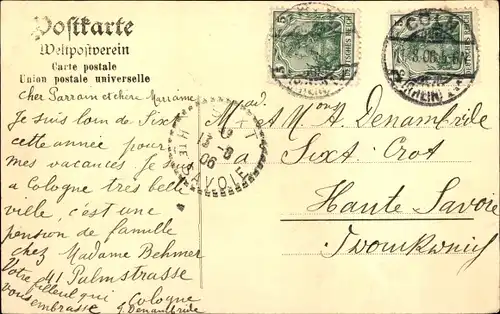 Postkarte
Weltpostverein
Carte postale
Union postale universelle
cher Parrain et chère Marraine
Je suis loin de Sixt
cette année pour
mes vacances Je suis
a Cologne très belle
ville, c'est une
pension de famille
chez Madame Behmer
41 Palmstrasse
Cologne
Votre filleul qui
vous embrasse
J. Denambride
Mr et M Denambride
a Sixt Crot
Haute Savoie
DEUTSCHES REICH
5
5
CÖLN
(RHEIN)
SIXT
13 -8
06
HTE SAVOIE